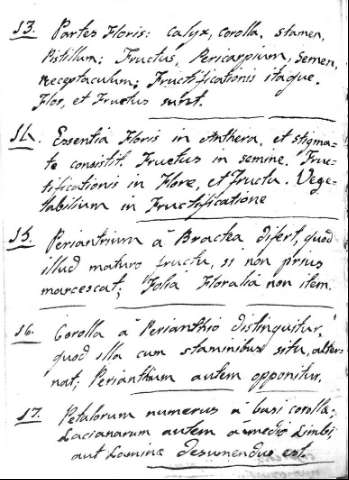 13. Partes Floris: calyx, corolla, stamen,
Pistillum; Fructus, Pericarpium, Semen,
Receptaculum; Fructificationis itaque.
Flos, et Fructus sunt.
14. Essentia Floris in Anthera, et stigma=
te consistit. Fructus in semine. Fruc=
tificationis in Flore, et fructu. Vege=
tabilium in Fructificatione
15. Periantrium à Bractea difert, quod
illud maturo fructu, si non prius
marcescat; Folia Floralia non item.
16. Corolla à Perianthio distinguitur,
quod illa cum staminibus situ, alter=
nat; Perianthium autem opponitur.
17. Petalorum numerus à basi corollæ;
Lacianarum autem à medio Limbi,
aut Laminæ desumendus est.